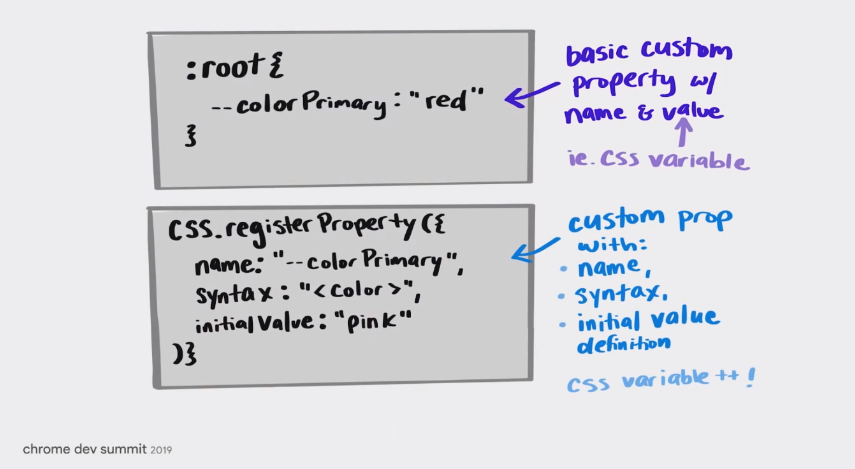 :root{
--colorPrimary:"red"
}
basic custom
property w/
name & value
ie. CSS variable
CSS.registerProperty({
name: "--colorPrimary",
syntax: "<color>",
initialValue: "pink"
)}
custom prop
with:
• name,
• syntax,
• initial value
definition
css variable ++!
chrome dev summit 2019